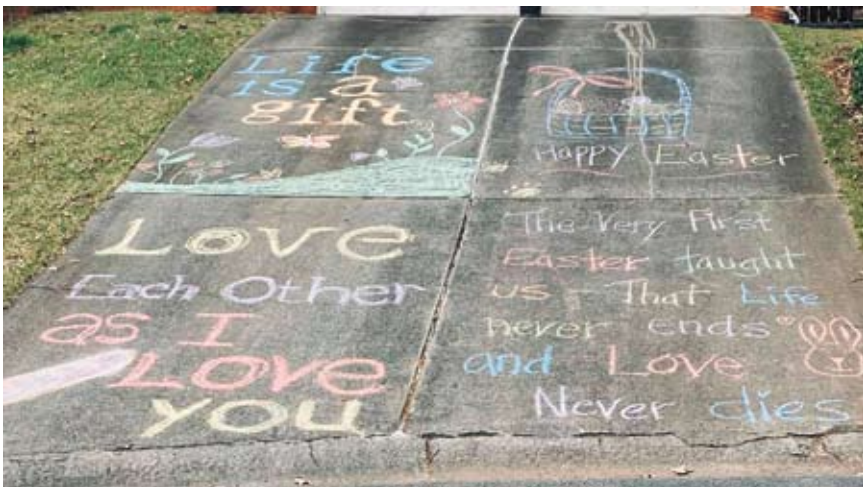 Life
is a
gift
Happy Easter
Love
Each Other
as I
Love
you
The Very First
Easter taught
us - That Life
never ends
and Love
Never dies